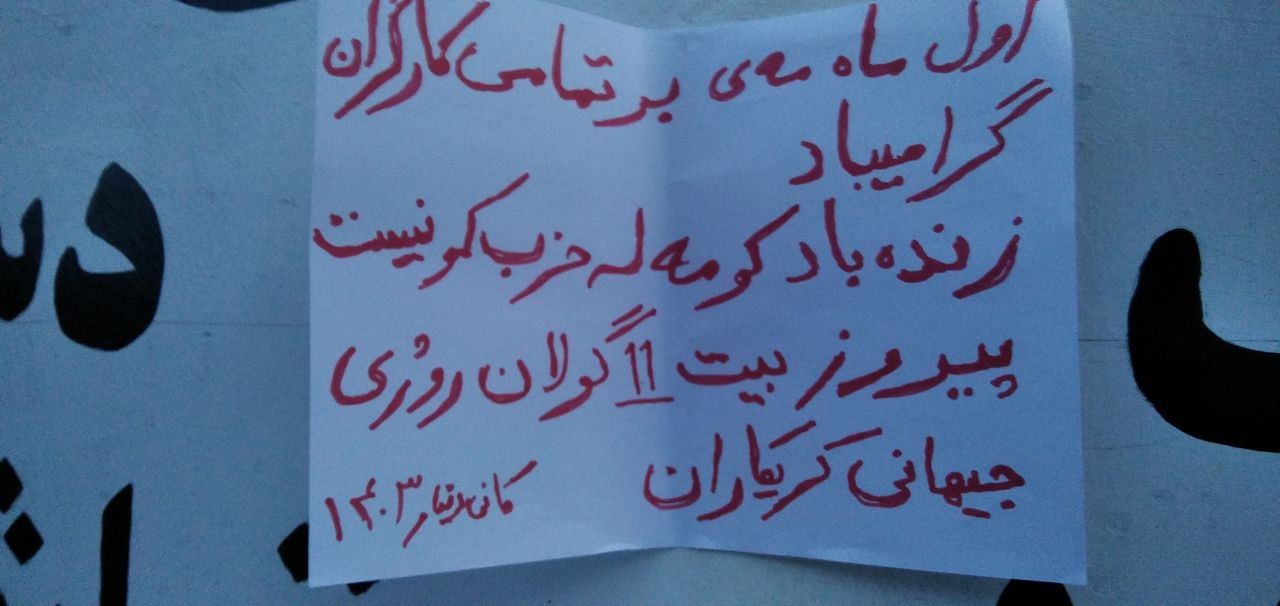 اول ماه مه‌ی بر تمامی کارگران
گرامیباد
زنده باد کومه له حزب کمونیست
پیروز بیت 11 گولان روژی
جیهانی کریکاران
کانی دینار ۱۴۰۳